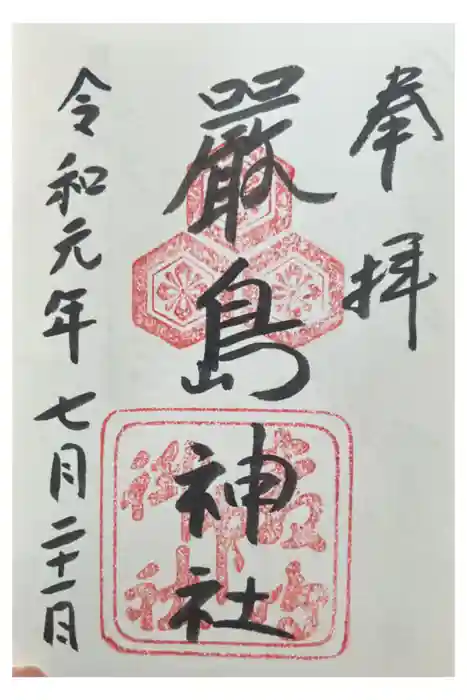 奉拝
厳島神社
令和元年七月二十一日